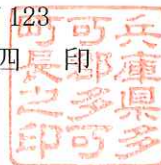 123
四 印
兵庫県多
可郡多可
町長之印